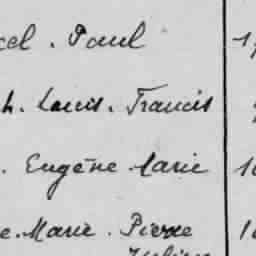 cel. Paul 1
h. Louis. Francis
. Eugène Marie 1
e. Marie. Pierre 1